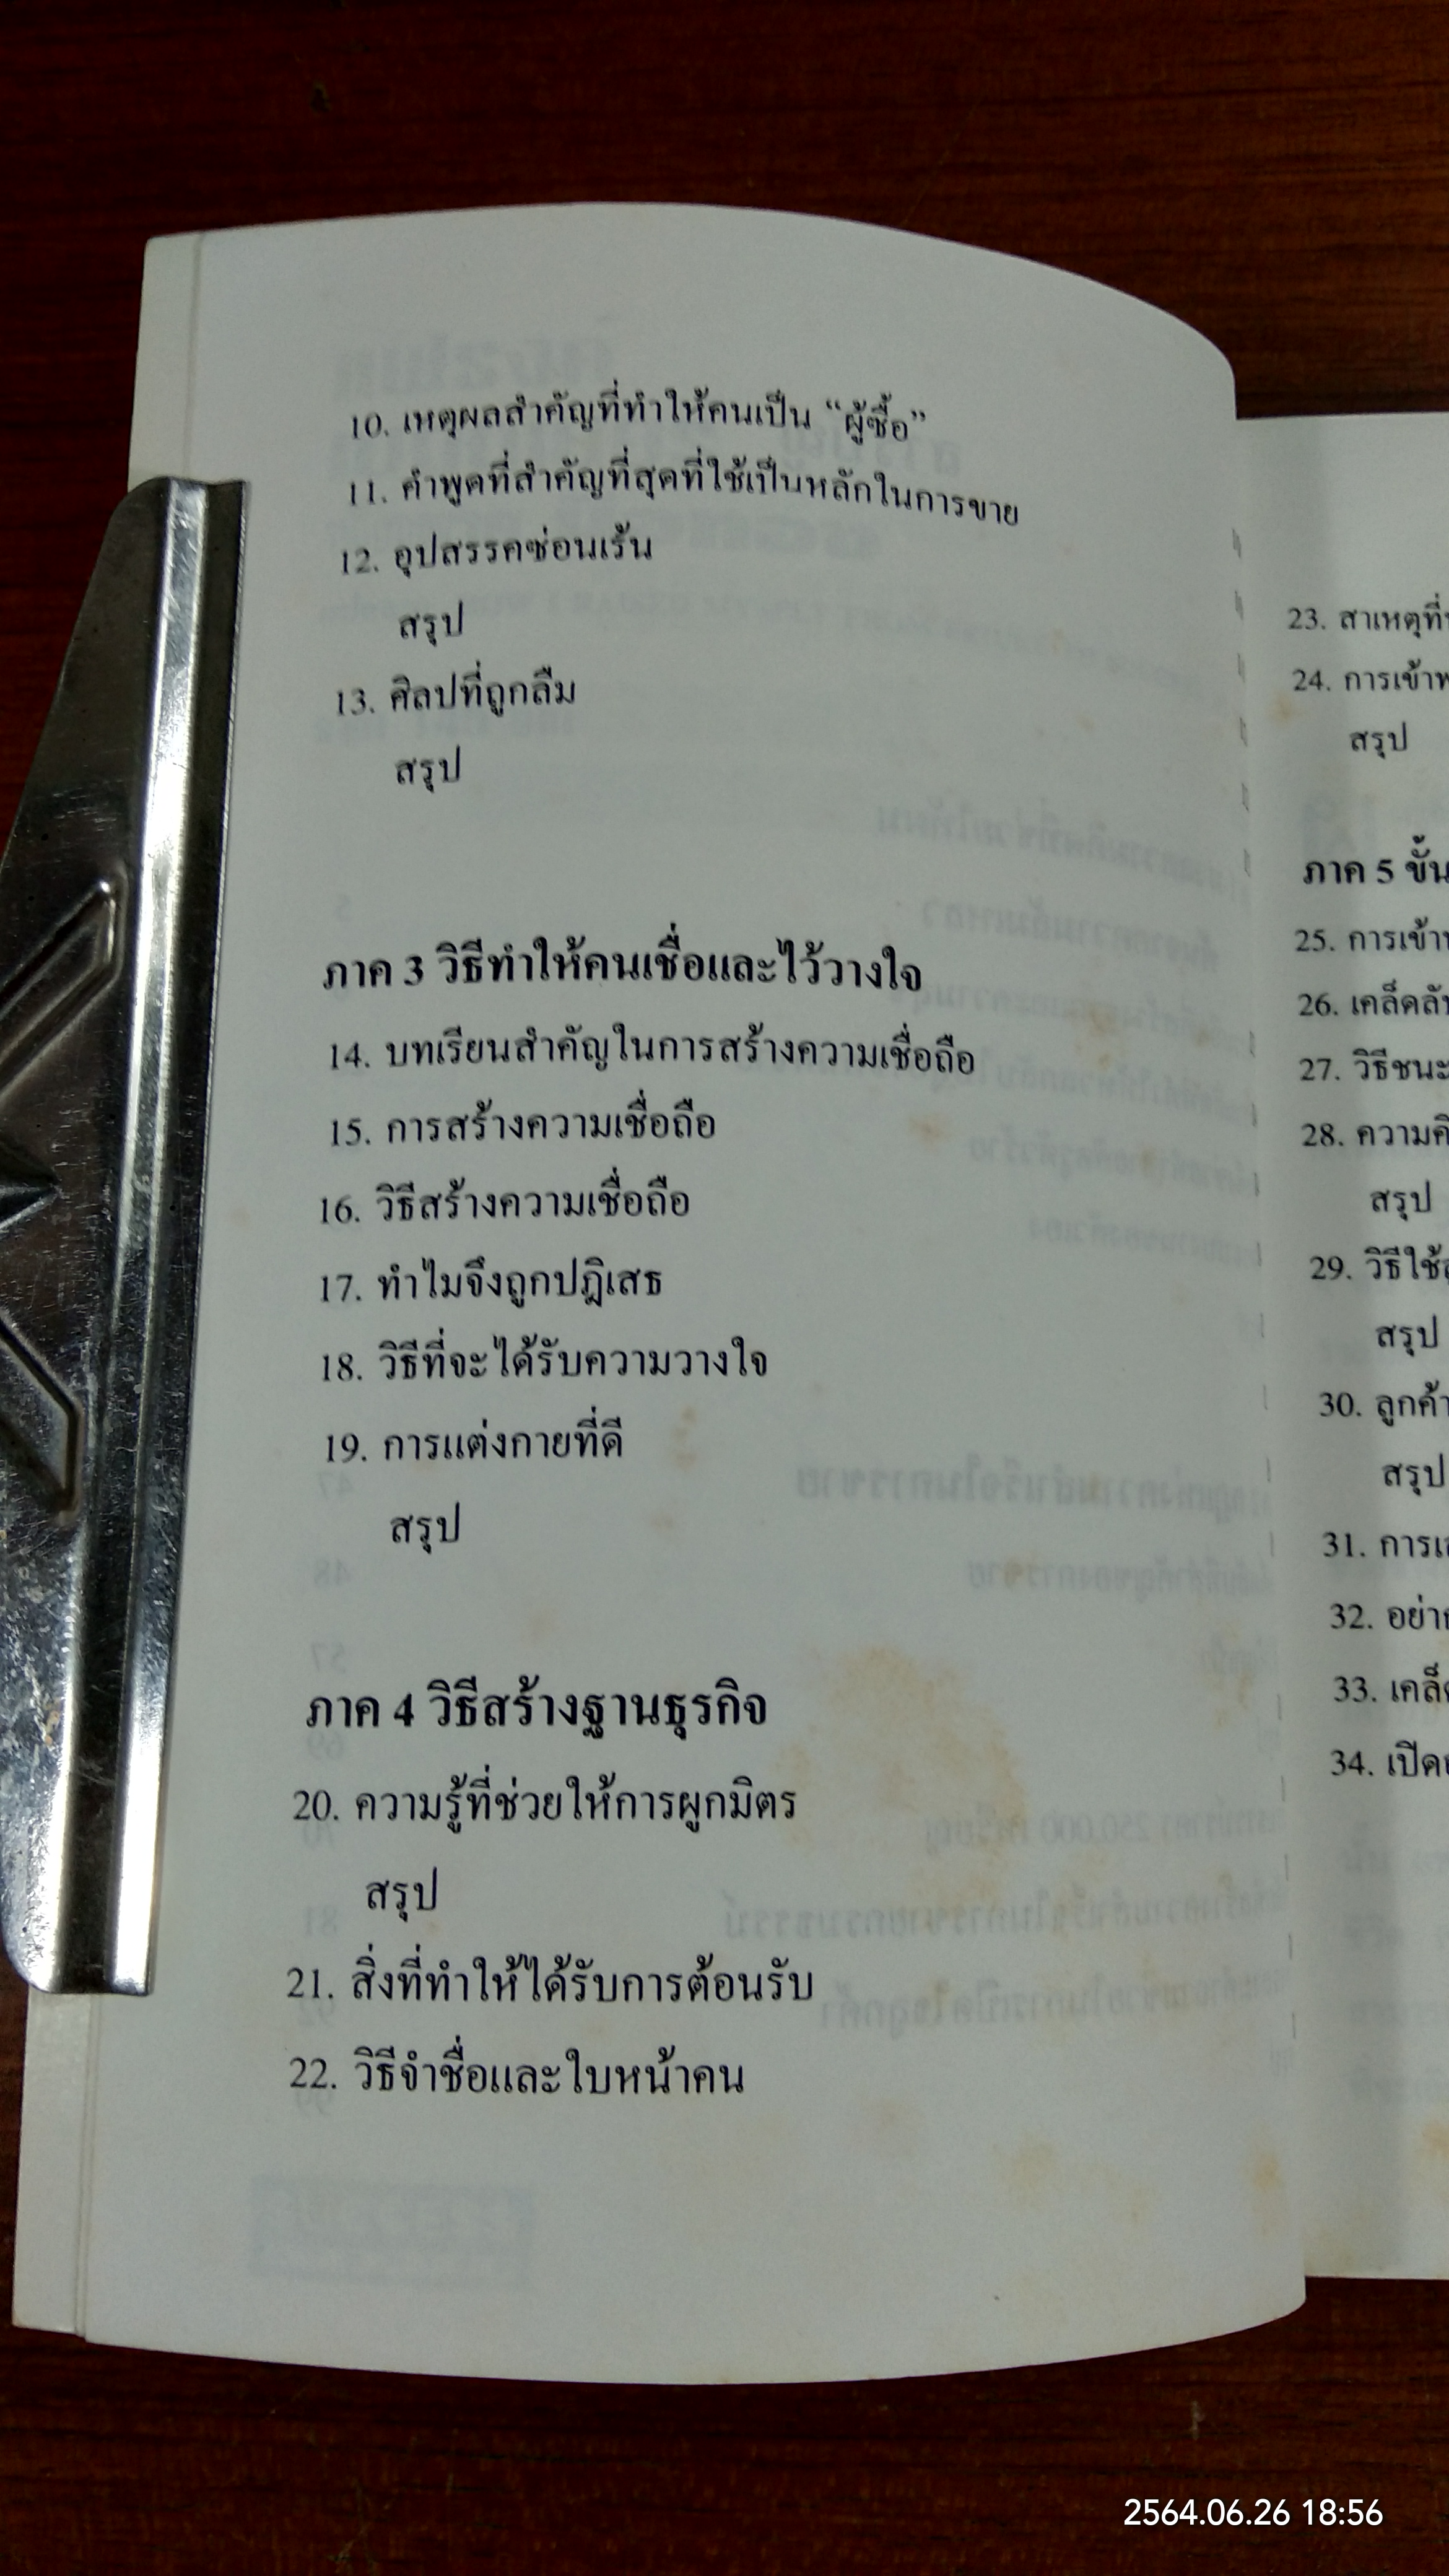 10. เหตุผลสำคัญที่ทำให้คนเป็น “ผู้ซื้อ”
11. คำพูดที่สำคัญที่สุดที่ใช้เป็นหลักในการขาย
12. อุปสรรคซ่อนเร้น
สรุป
13. ศิลปที่ถูกลืม
สรุป
ภาค 3 วิธีทำให้คนเชื่อและไว้วางใจ
14. บทเรียนสำคัญในการสร้างความเชื่อถือ
15. การสร้างความเชื่อถือ
16. วิธีสร้างความเชื่อถือ
17. ทำไมจึงถูกปฎิเสธ
18. วิธีที่จะได้รับความวางใจ
19. การแต่งกายที่ดี
สรุป
ภาค 4 วิธีสร้างฐานธุรกิจ
20. ความรู้ที่ช่วยให้การผูกมิตร
สรุป
21. สิ่งที่ทำให้ได้รับการต้อนรับ
22. วิธีจำชื่อและใบหน้าคน
23. สาเหตุที่
24. การเข้า
สรุป
ภาค 5 ขั้น
25. การเข้า
26. เคล็ดลั
27. วิธีชนะ
28. ความคิ
สรุป
29. วิธีใช้
สรุป
30. ลูกค้า
สรุป
31. การ
32. อย่า
33. เคล็
34. เปิด
2564.06.26 18:56